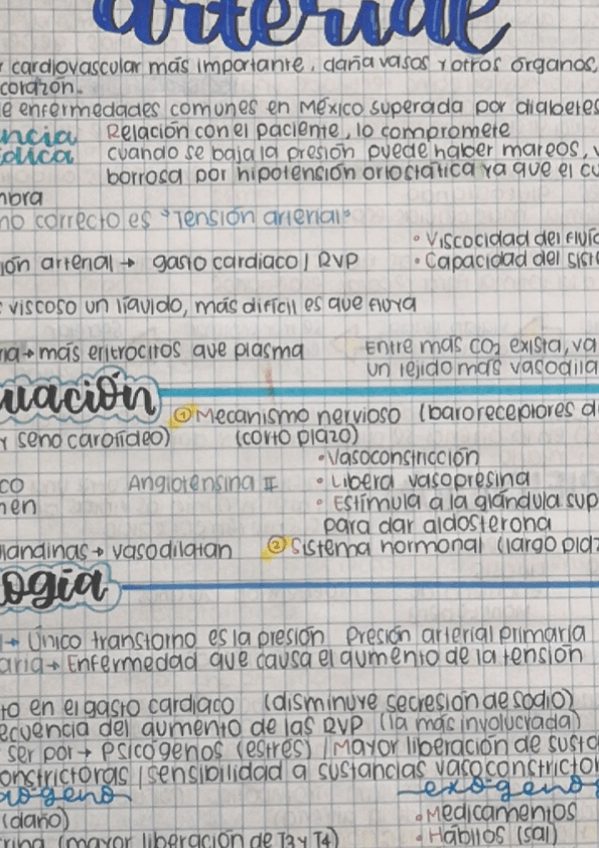 arterial
cardiovascular más importante, daña vasos y otros órganos,
corazón.
e enfermedades comunes en México superada por diabetes
ncia Relación con el paciente, lo compromete
ódica cuando se baja la presión puede haber mareos, v
borrosa por hipotensión ortostática ya que el cu
mbra
no correcto es "Tensión arterial"
• Viscocidad del fluíd
ión arterial → gasto cardiaco / RVP • Capacidad del sist
viscoso un líquido, más difícil es que fluya
ia → más eritrocitos que plasma Entre más CO2 exista, va
un tejido más vasodila
uación
① Mecanismo nervioso (baroreceptores d
y seno carotídeo) (corto plazo)
• Vasoconstricción
co Angiotensina II • Libera vasopresina
nen • Estimula a la glándula sup
para dar aldosterona
landinas → vasodilatan ② Sistema hormonal (largo plaz
ogía
→ Único transtorno es la presión Presión arterial primaria
aria → Enfermedad que causa el aumento de la tensión
to en el gasto cardiaco (disminuye secresión de sodio)
ecuencia del aumento de las RVP (la más involucrada)
ser por → Psicógenos (estrés) / Mayor liberación de susta
onstrictoras / sensibilidad a sustancias vasoconstrictor
ógeno exógeno
(daño) • Medicamentos
rina (mayor liberación de T3 y T4) • Hábitos (sal)